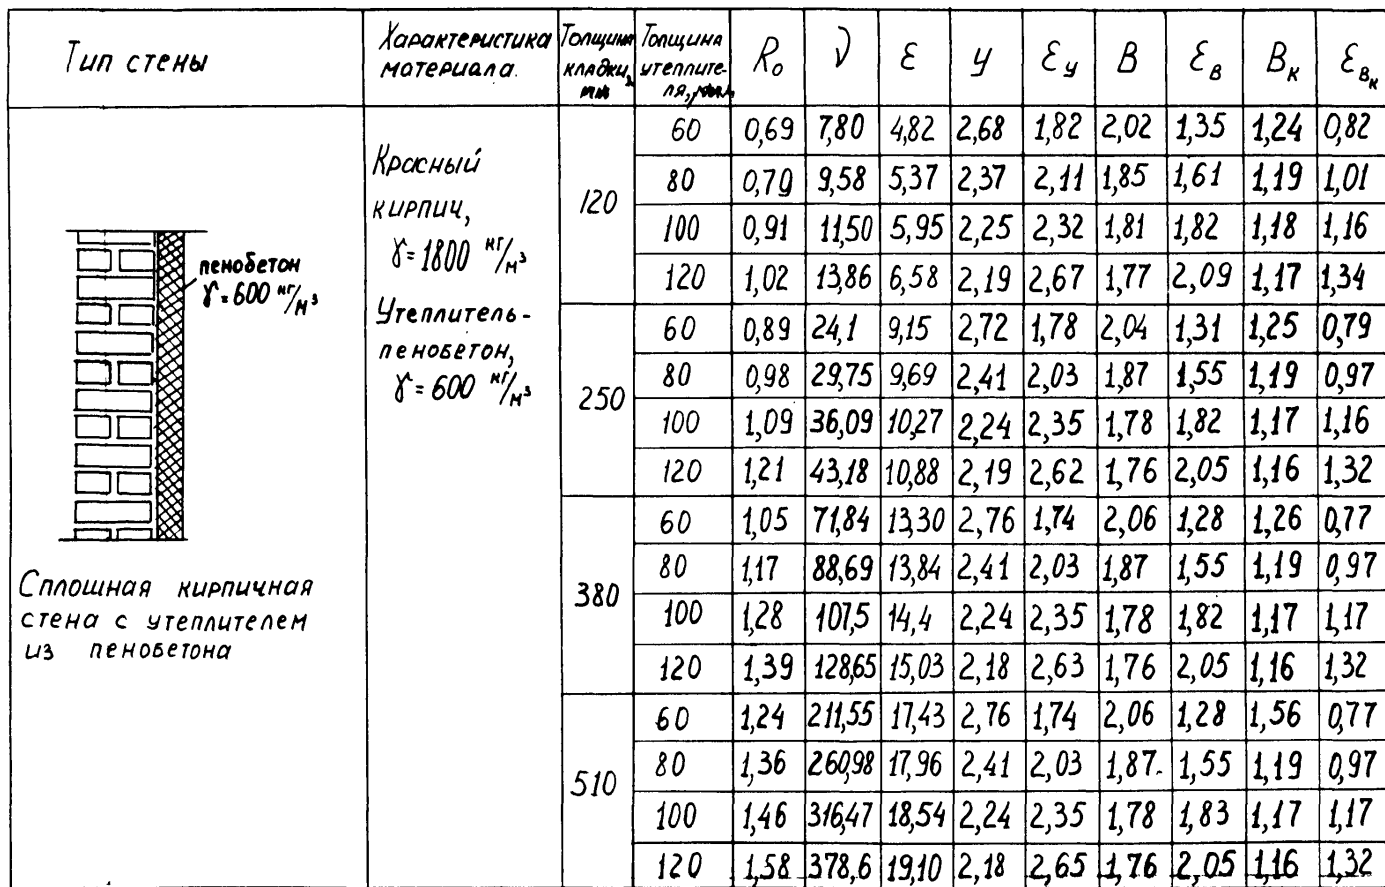 Тип стены
Характеристика материала.
Толщина кладки, мм
Толщина утеплителя, мм
R₀ ν ε y ε_y B ε_B B_к ε_Bк
пенобетон
γ=600 кг/м³
Сплошная кирпичная
стена с утеплителем
из пенобетона
Красный
кирпич,
γ=1800 кг/м³
Утеплитель-
пенобетон,
γ=600 кг/м³
120
60 0,69 7,80 4,82 2,68 1,82 2,02 1,35 1,24 0,82
80 0,79 9,58 5,37 2,37 2,11 1,85 1,61 1,19 1,01
100 0,91 11,50 5,95 2,25 2,32 1,81 1,82 1,18 1,16
120 1,02 13,86 6,58 2,19 2,67 1,77 2,09 1,17 1,34
250
60 0,89 24,1 9,15 2,72 1,78 2,04 1,31 1,25 0,79
80 0,98 29,75 9,69 2,41 2,03 1,87 1,55 1,19 0,97
100 1,09 36,09 10,27 2,24 2,35 1,78 1,82 1,17 1,16
120 1,21 43,18 10,88 2,19 2,62 1,76 2,05 1,16 1,32
380
60 1,05 71,84 13,30 2,76 1,74 2,06 1,28 1,26 0,77
80 1,17 88,69 13,84 2,41 2,03 1,87 1,55 1,19 0,97
100 1,28 107,5 14,4 2,24 2,35 1,78 1,82 1,17 1,17
120 1,39 128,65 15,03 2,18 2,63 1,76 2,05 1,16 1,32
510
60 1,24 211,55 17,43 2,76 1,74 2,06 1,28 1,56 0,77
80 1,36 260,98 17,96 2,41 2,03 1,87 1,55 1,19 0,97
100 1,46 316,47 18,54 2,24 2,35 1,78 1,83 1,17 1,17
120 1,58 378,6 19,10 2,18 2,65 1,76 2,05 1,16 1,32